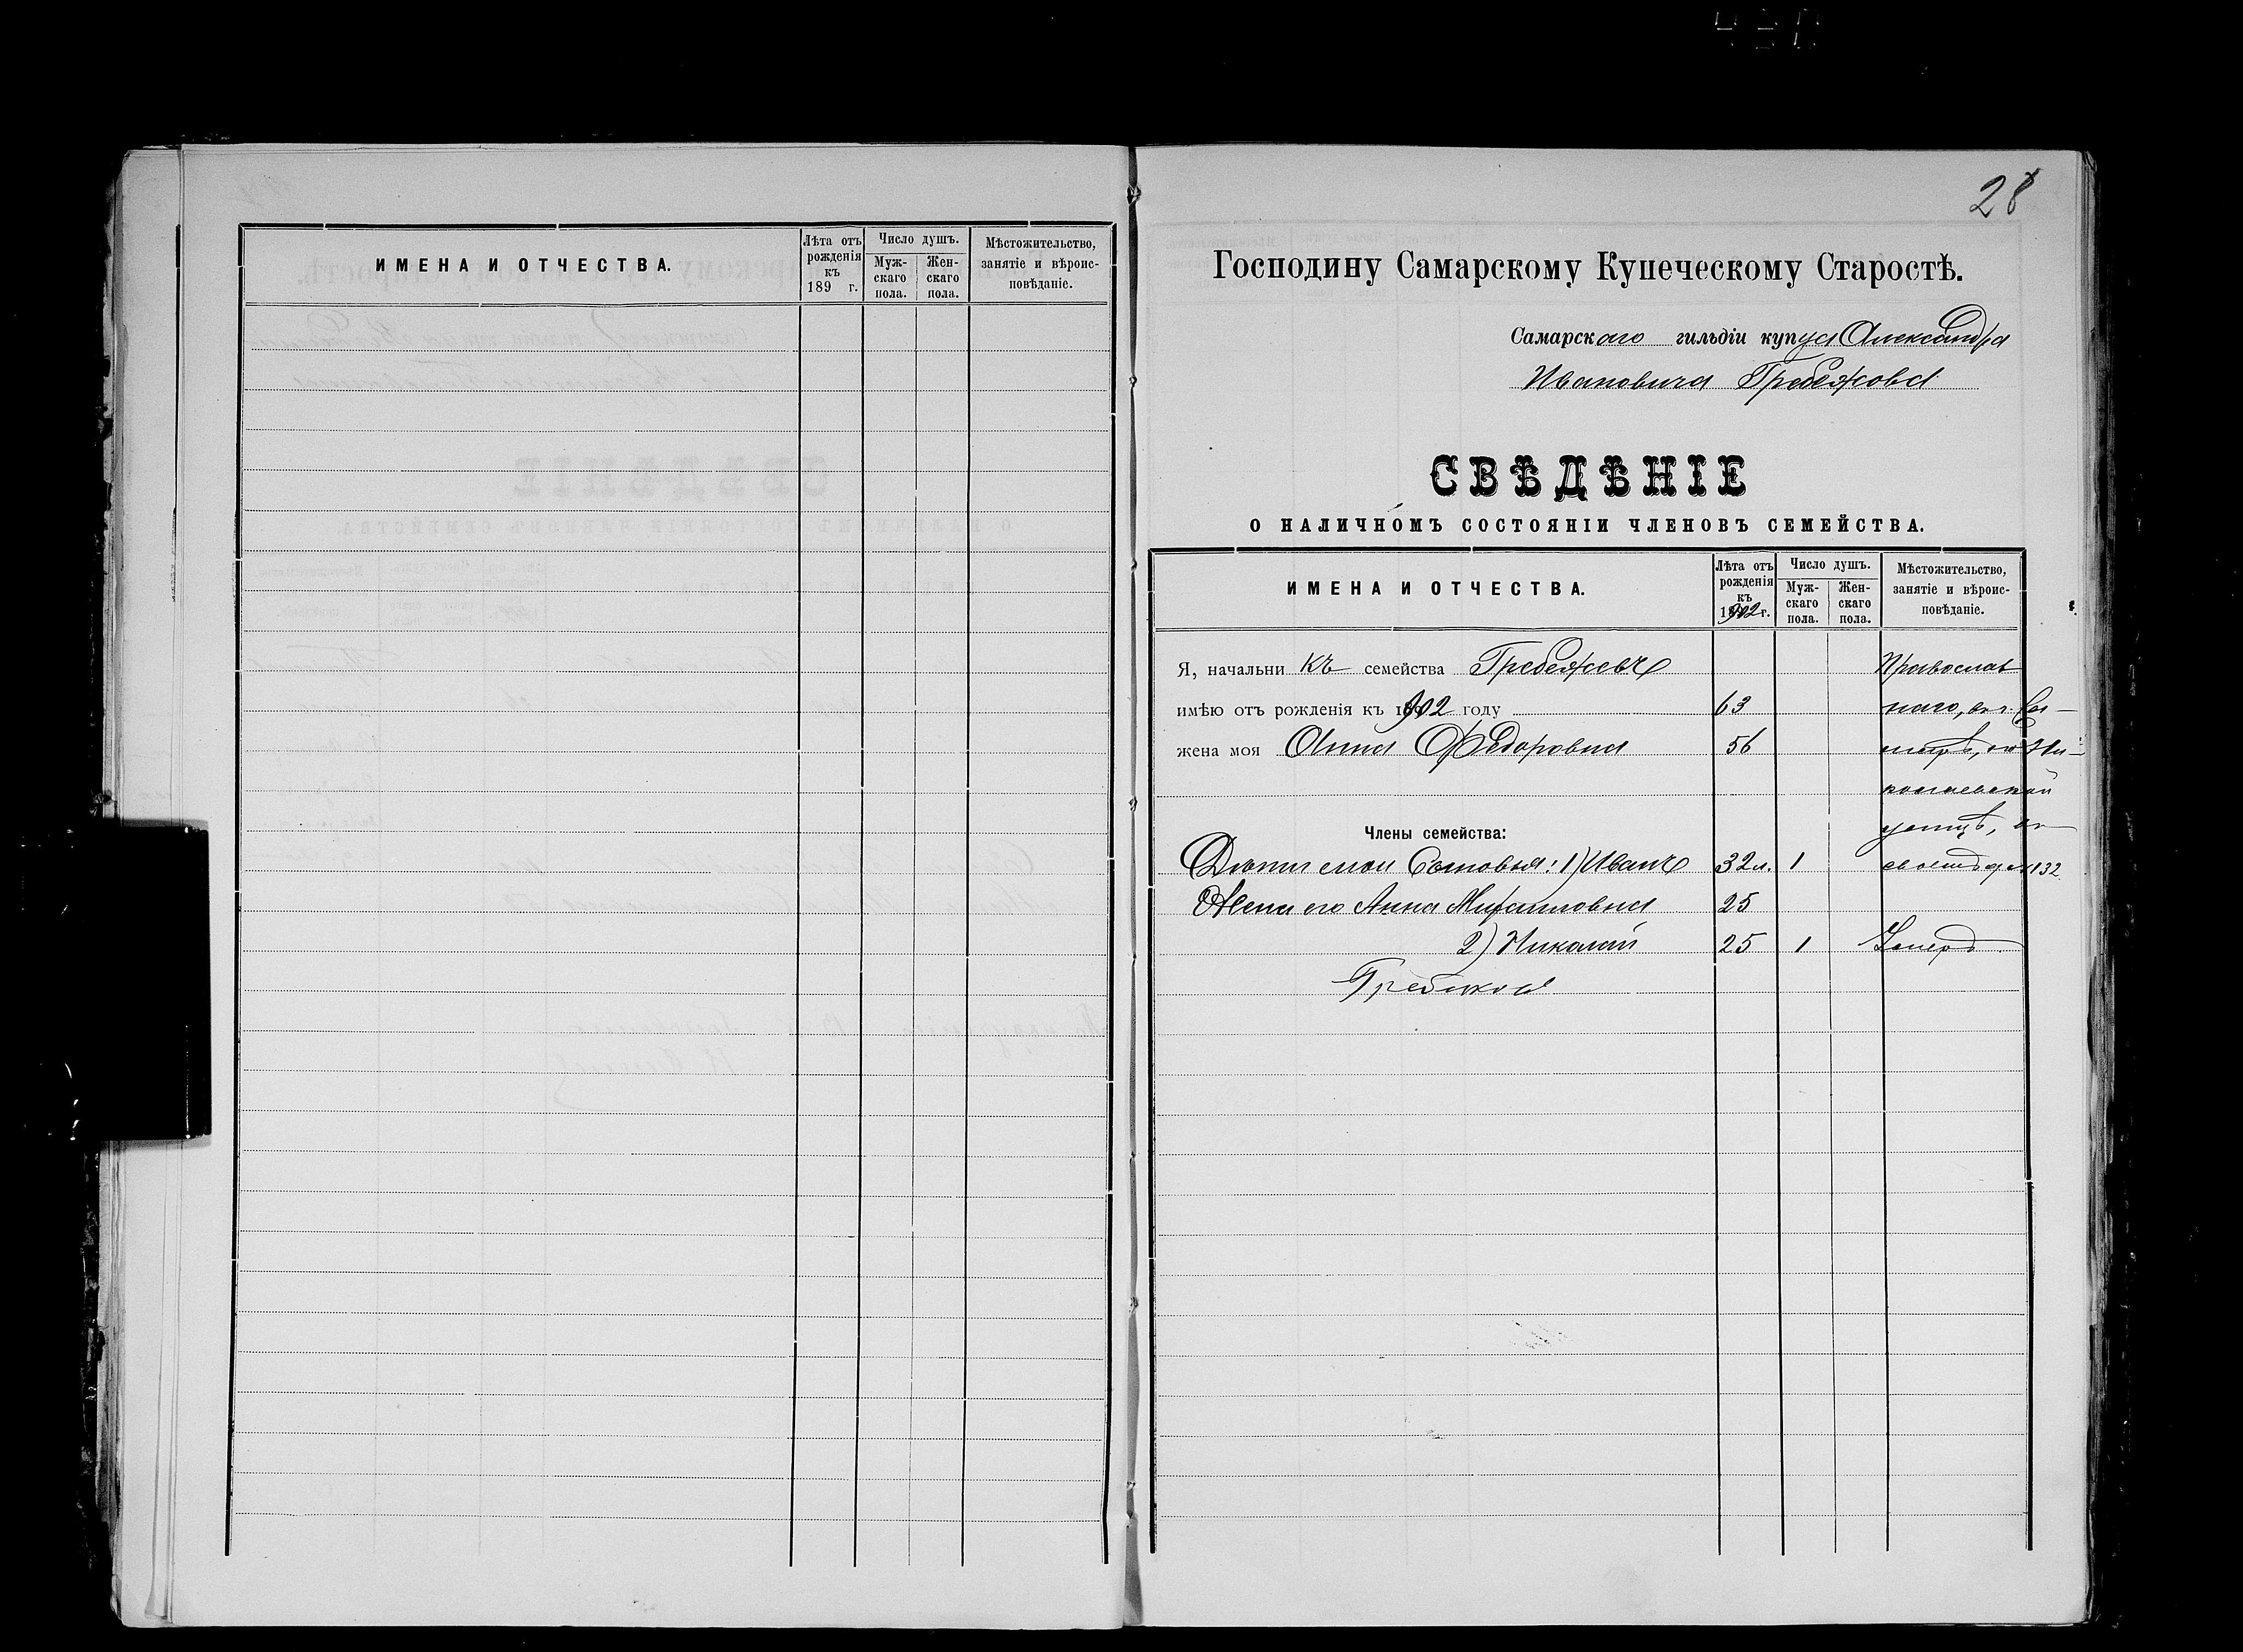 ИМЕНА И ОТЧЕСТВА.
Лѣта отъ рожденія къ 189 г.
Число душъ.
Мужскаго пола.
Женскаго пола.
Мѣстожительство, занятіе и вѣроисповѣданіе.
28
Господину Самарскому Купеческому Старостѣ.
Самарскаго гильдіи купца Александра
Ивановича Гребежова
СВѢДѢНІЕ
О НАЛИЧНОМЪ СОСТОЯНІИ ЧЛЕНОВЪ СЕМЕЙСТВА.
ИМЕНА И ОТЧЕСТВА.
Лѣта отъ
рожденія
къ
1902 г.
Число душъ.
Муж-
скаго
пола.
Жен-
скаго
пола.
Мѣстожительство,
занятіе и вѣроис-
повѣданіе.
Я, начальникъ семейства Гребежевъ Православ
имѣю отъ рожденія къ 1902 году 63 наго, въ г. Са-
жена моя Анна Федоровна 56 марѣ, на Ни-
колаевской
Члены семейства: улицѣ, въ
Дѣти мои Сыновья: 1) Иванъ 32 л. 1 своемъ д. № 132
Жена его Анна Михаиловна 25
2) Николай 25 1